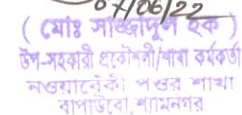 07/06/22
( মোঃ সাজ্জাদুল হক )
উপ-সহকারী প্রকৌশলী/শাখা কর্মকর্তা
নওয়াবেঁকী পওর শাখা
বাপাউবো, শ্যামনগর